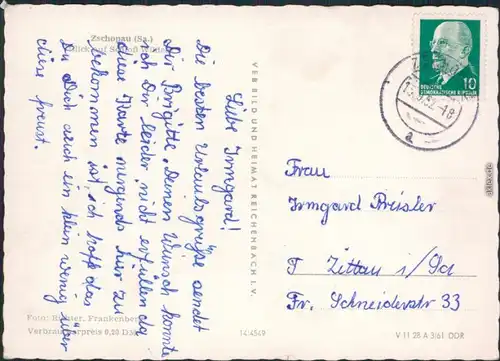 Zschopau (Sa.)
Blick auf Schloß Wildeck
Liebe Irmgard!
Die besten Urlaubsgrüße sendet
Dir Brigitte. Deinen Wunsch konnte
ich Dir leider nicht erfüllen da
diese Karte nirgends hier zu
bekommen ist, ich hoffe das
Du Dich auch ein klein wenig über
diese freust.
Foto: Richter, Frankenberg
Verbraucherpreis 0,20 DM
14/4549
VEB BILD UND HEIMAT REICHENBACH I. V.
10
DEUTSCHE
DEMOKRATISCHE REPUBLIK
a
Frau
Irmgard Preisler
Zittau i/Sa
Fr. Schneiderstr 33
V 11 28 A 3/61 DDR